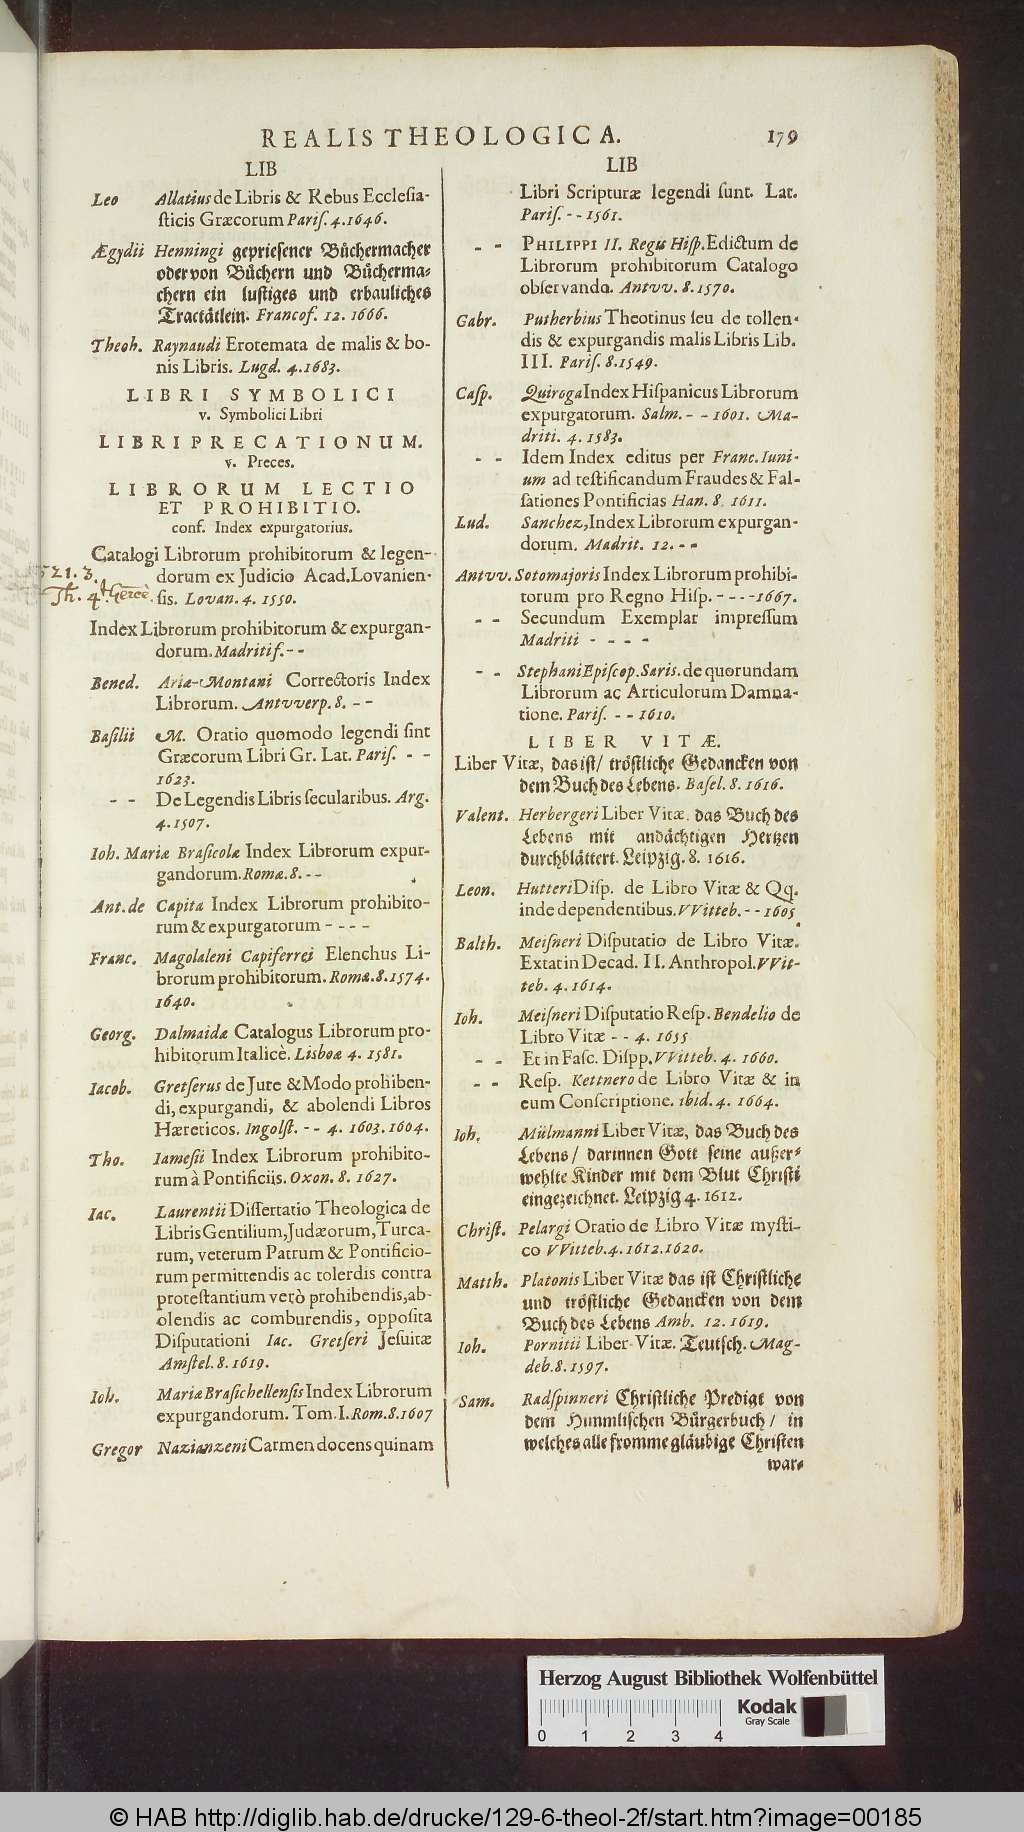 REALIS THEOLOGICA. 179
LIB
Leo Allatius de Libris & Rebus Ecclesia-
sticis Græcorum Paris. 4. 1646.
Ægydii Henningi gepriesener Büchermacher
oder von Büchern und Bücherma-
chern ein lustiges und erbauliches
Tractätlein. Francof. 12. 1666.
Theoh. Raynaudi Erotemata de malis & bo-
nis Libris. Lugd. 4. 1683.
LIBRI SYMBOLICI
v. Symbolici Libri
LIBRI PRECATIONUM.
v. Preces.
LIBRORUM LECTIO
ET PROHIBITIO.
conf. Index expurgatorius.
Catalogi Librorum prohibitorum & legen-
521. 3. dorum ex Judicio Acad. Lovanien-
Th. 4 sis. Lovan. 4. 1550.
Index Librorum prohibitorum & expurgan-
dorum. Madriti f. - -
Bened. Aria-Montani Correctoris Index
Librorum. Antvverp. 8. - -
Basilii M. Oratio quomodo legendi sint
Græcorum Libri Gr. Lat. Paris. - -
1623.
- - De Legendis Libris secularibus. Arg.
4. 1507.
Ioh. Mariæ Brasicolæ Index Librorum expur-
gandorum. Romæ. 8. - -
Ant. de Capita Index Librorum prohibito-
rum & expurgatorum - - - -
Franc. Magolaleni Capiferrei Elenchus Li-
brorum prohibitorum. Romæ. 8. 1574.
1640.
Georg. Dalmaidæ Catalogus Librorum pro-
hibitorum Italicè. Lisboæ 4. 1581.
Iacob. Gretserus de Jure & Modo prohiben-
di, expurgandi, & abolendi Libros
Hæreticos. Ingolst. - - 4. 1603. 1604.
Tho. Iamesii Index Librorum prohibito-
rum à Pontificiis. Oxon. 8. 1627.
Iac. Laurentii Dissertatio Theologica de
Libris Gentilium, Judæorum, Turca-
rum, veterum Patrum & Pontificio-
rum permittendis ac tolerdis contra
protestantium verò prohibendis, ab-
olendis ac comburendis, opposita
Disputationi Iac. Gretseri Jesuitæ
Amstel. 8. 1619.
Ioh. Mariæ Brasichellensis Index Librorum
expurgandorum. Tom. I. Rom. 8. 1607
Gregor Nazianzeni Carmen docens quinam
LIB
Libri Scripturæ legendi sunt. Lat.
Paris. - - 1561.
- - PHILIPPI II. Regis Hisp. Edictum de
Librorum prohibitorum Catalogo
observando. Antvv. 8. 1570.
Gabr. Putherbius Theotinus seu de tollen-
dis & expurgandis malis Libris Lib.
III. Paris. 8. 1549.
Casp. Quiroga Index Hispanicus Librorum
expurgatorum. Salm. - - 1601. Ma-
driti. 4. 1583.
- - Idem Index editus per Franc. Iuni-
um ad testificandum Fraudes & Fal-
sationes Pontificias Han. 8. 1611.
Lud. Sanchez, Index Librorum expurgan-
dorum. Madrit. 12. - -
Antvv. Sotomajoris Index Librorum prohibi-
torum pro Regno Hisp. - - - - 1667.
- - Secundum Exemplar impressum
Madriti - - - -
- - Stephani Episcop. Saris. de quorundam
Librorum ac Articulorum Damna-
tione. Paris. - - 1610.
LIBER VITÆ.
Liber Vitæ, das ist/ tröstliche Gedancken von
dem Buch des Lebens. Basel. 8. 1616.
Valent. Herbergeri Liber Vitæ. das Buch des
Lebens mit andächtigen Hertzen
durchblättert. Leipzig. 8. 1616.
Leon. Hutteri Disp. de Libro Vitæ & Qq.
inde dependentibus. VVitteb. - - 1605
Balth. Meisneri Disputatio de Libro Vitæ.
Extat in Decad. II. Anthropol. VVit-
teb. 4. 1614.
Ioh. Meisneri Disputatio Resp. Bendelio de
Libro Vitæ - - 4. 1655
- - Et in Fasc. Dispp. VVitteb. 4. 1660.
- - Resp. Kettnero de Libro Vitæ & in
eum Conscriptione. ibid. 4. 1664.
Ioh. Mülmanni Liber Vitæ, das Buch des
Lebens/ darinnen Gott seine außer-
wehlte Kinder mit dem Blut Christi
eingezeichnet. Leipzig 4. 1612.
Christ. Pelargi Oratio de Libro Vitæ mysti-
co VVitteb. 4. 1612. 1620.
Matth. Platonis Liber Vitæ das ist Christliche
und tröstliche Gedancken von dem
Buch des Lebens Amb. 12. 1619.
Ioh. Pornitii Liber Vitæ. Teutsch. Mag-
deb. 8. 1597.
Sam. Radspinneri Christliche Predigt von
dem Himmlischen Bürgerbuch/ in
welches alle fromme gläubige Christen
war-
Herzog August Bibliothek Wolfenbüttel
Kodak
Gray Scale
0 1 2 3 4
© HAB http://diglib.hab.de/drucke/129-6-theol-2f/start.htm?image=00185